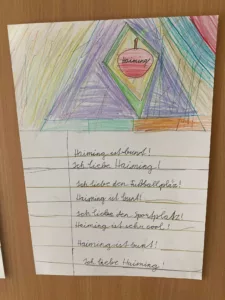 Haiming
Haiming ist bunt!
Ich liebe Haiming!
Ich liebe den Fußballplatz!
Haiming ist bunt!
Ich liebe den Sportplatz!
Haiming ist sehr cool!
Haiming ist bunt!
Ich liebe Haiming!